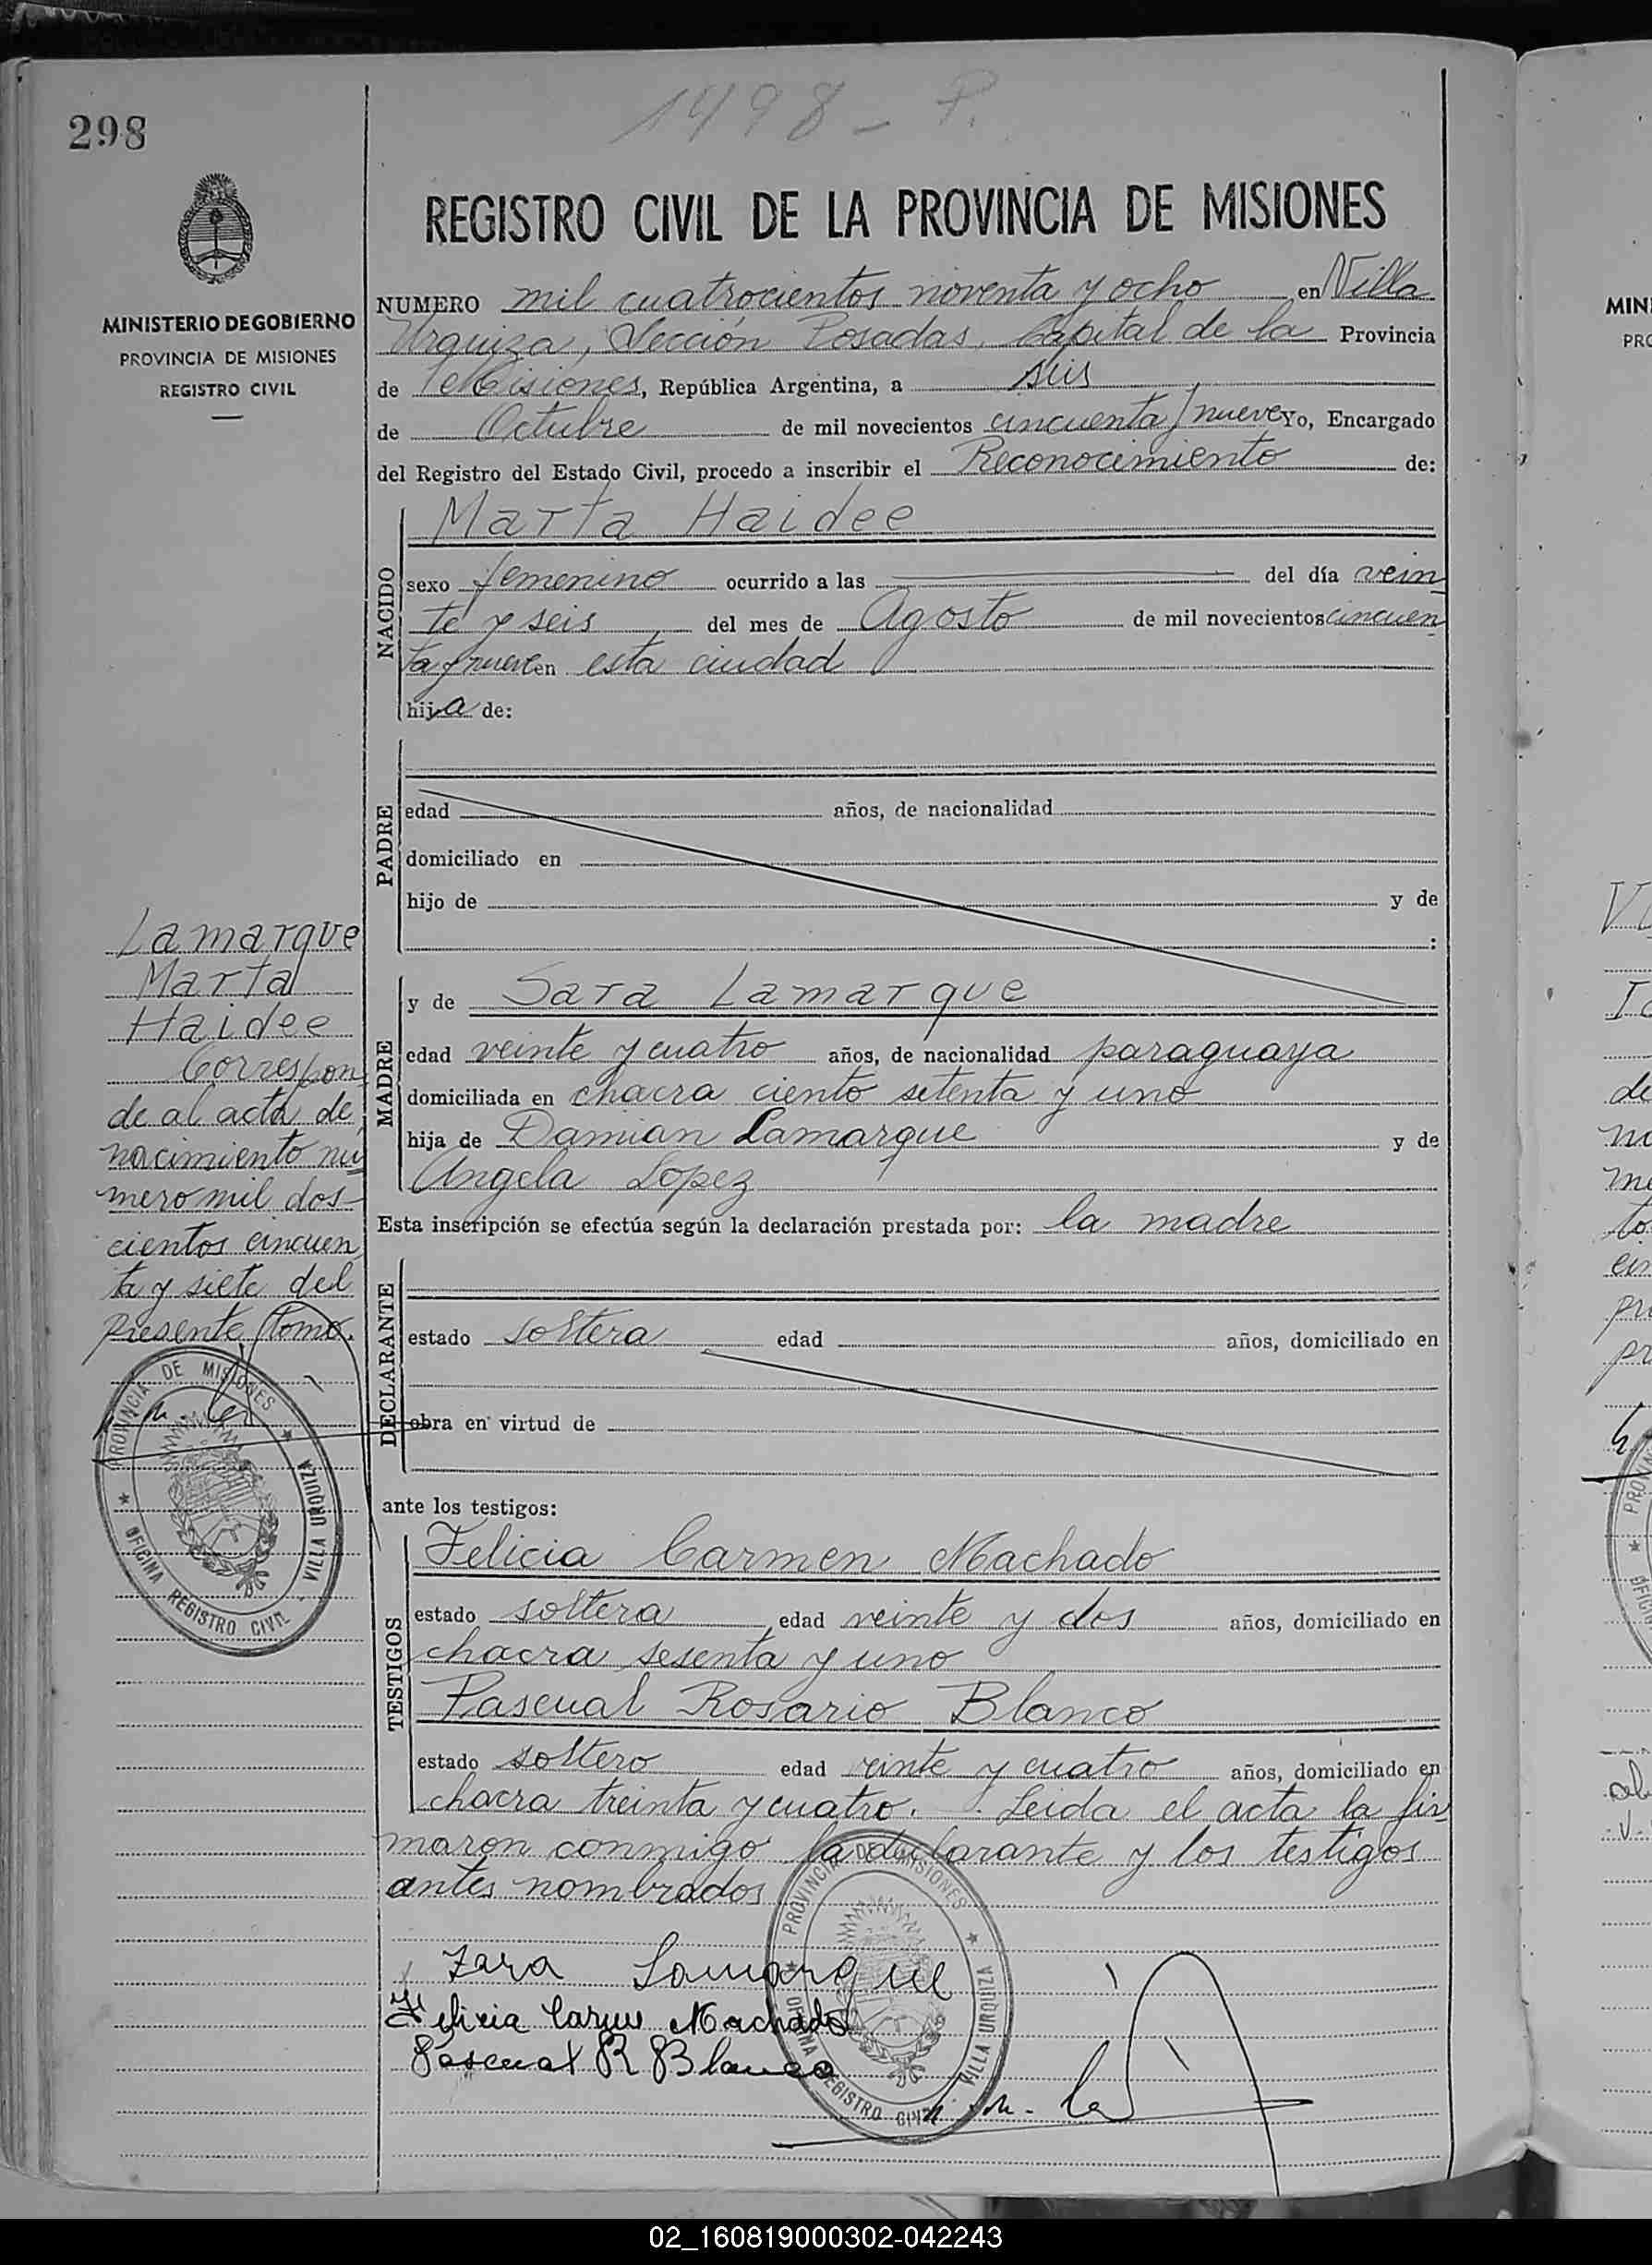 298
1498 - P.
MINISTERIO DE GOBIERNO
PROVINCIA DE MISIONES
REGISTRO CIVIL
REGISTRO CIVIL DE LA PROVINCIA DE MISIONES
NUMERO mil cuatrocientos noventa y ocho en Villa
Urquiza, Sección Posadas, Capital de la Provincia
de Misiones, República Argentina, a seis
de Octubre de mil novecientos cincuenta y nueve Yo, Encargado
del Registro del Estado Civil, procedo a inscribir el Reconocimiento de:
NACIDO
Marta Haidee
sexo femenino ocurrido a las del día vein
te y seis del mes de Agosto de mil novecientos cincuen
ta y nueve en esta ciudad
hija de:
PADRE
edad años, de nacionalidad
domiciliado en
hijo de y de
:
MADRE
y de Sara Lamarque
edad veinte y cuatro años, de nacionalidad paraguaya
domiciliada en chacra ciento setenta y uno
hija de Damian Lamarque y de
Angela Lopez
Esta inscripción se efectúa según la declaración prestada por: la madre
DECLARANTE
estado soltera edad años, domiciliado en
obra en virtud de
ante los testigos:
TESTIGOS
Felicia Carmen Machado
estado soltera edad veinte y dos años, domiciliado en
chacra sesenta y uno
Pascual Rosario Blanco
estado soltero edad veinte y cuatro años, domiciliado en
chacra treinta y cuatro. Leida el acta la fir
maron conmigo la declarante y los testigos
antes nombrados
Zara Lamarque
Felicia Carmen Machado
Pascual R Blanco
PROVINCIA DE MISIONES
OFICINA REGISTRO CIVIL VILLA URQUIZA
Lamarque
Marta
Haidee
Correspon
de al acta de
nacimiento nú
mero mil dos
cientos cincuen
ta y siete del
presente tomo.
PROVINCIA DE MISIONES
OFICINA REGISTRO CIVIL VILLA URQUIZA
MIN
PRO
02_160819000302-042243